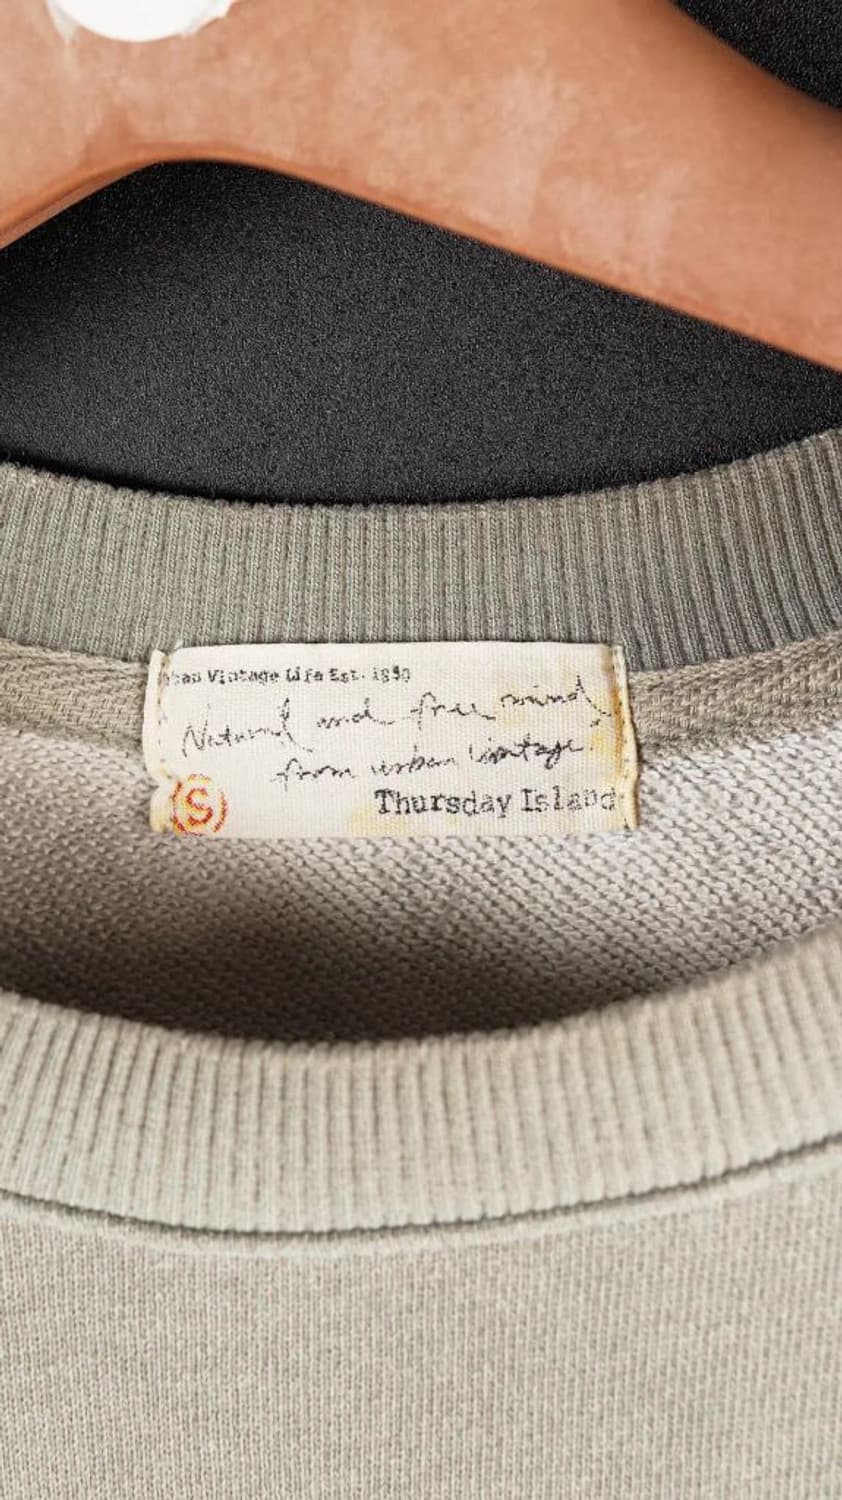 Vintage Life Est.
Natural and free mind
from urban vintage.
Thursday Island
S